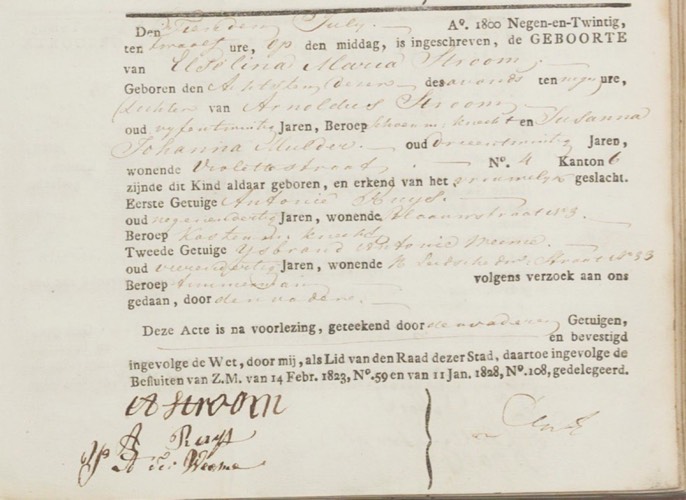 Den Tienden July A°. 1800 Negen-en-Twintig,
ten twaalf ure, op den middag, is ingeschreven, de GEBOORTE
van Maria Stroom
Geboren den Achtsten dezer des avonds ten negen ure,
dochter van Arnoldus Stroom
oud vyfentwintig Jaren, Beroep schoenm. knecht en Susanna
Johanna Mulder oud drieentwintig Jaren,
wonende Violettestraat N°. 4 Kanton 6
zijnde dit Kind aldaar geboren, en erkend van het vrouwelyk geslacht.
Eerste Getuige Antonie Ruys
oud negenendertig Jaren, wonende N°3
Beroep Kastenm. knecht
Tweede Getuige Ysbrand Antonie
oud vierendertig Jaren, wonende Straat N°33
Beroep timmerman volgens verzoek aan ons
gedaan, door den vader.
Deze Acte is na voorlezing, geteekend door den vader en Getuigen,
en bevestigd
ingevolge de Wet, door mij, als Lid van den Raad dezer Stad, daartoe ingevolge de
Besluiten van Z.M. van 14 Febr. 1823, N°. 59 en van 11 Jan. 1828, N°. 108, gedelegeerd.
A Stroom
A Ruys